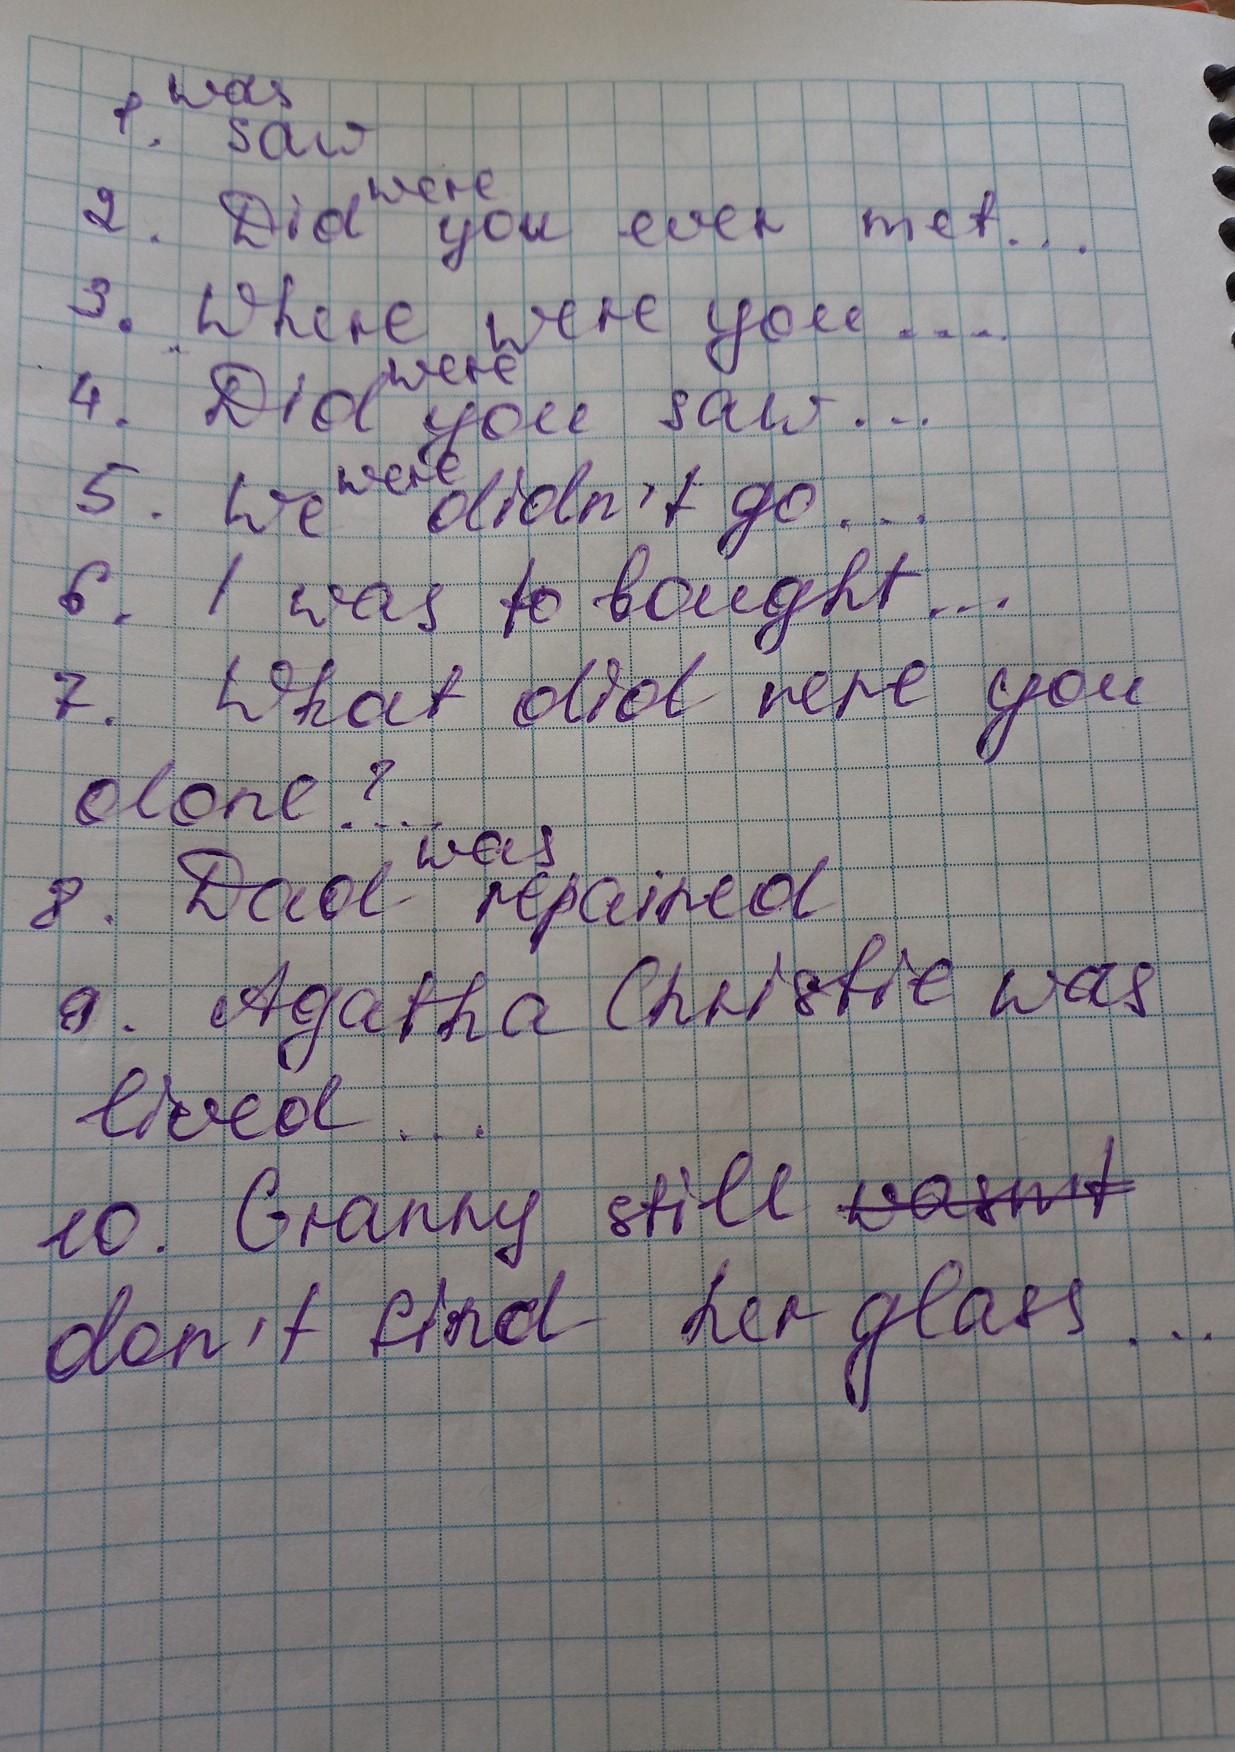 was
1. saw
were
2. Did you ever met...
3. Where were you ....
were
4. Did you saw...
were
5. We didn't go...
6. I was to bought...
7. What did were you
done?....
was
8. Dad repaired
9. Agatha Christie was
lived...
10. Granny still wasn't
don't find her glass...